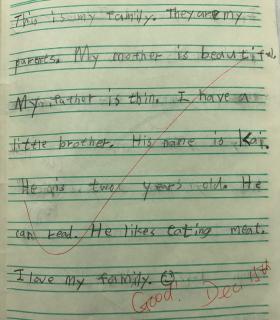 This is my family. They are my
parents. My mother is beautiful.
My father is thin. I have a
little brother. His name is Kai.
He is two years old. He
can read. He likes eating meat.
I love my family.
Good! Dec 15th